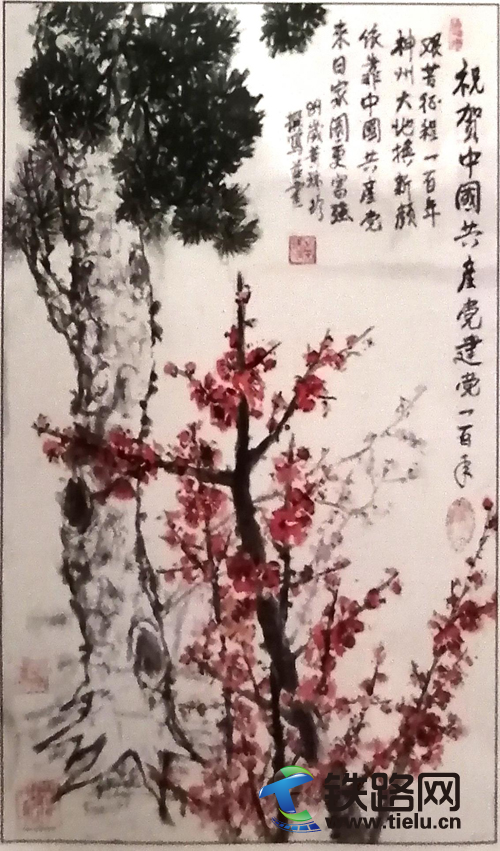 祝贺中國共產党建党一百年
艰苦征程一百年
神州大地换新颜
依靠中國共産党
来日家園更富强
铁路网
www.tielu.cn